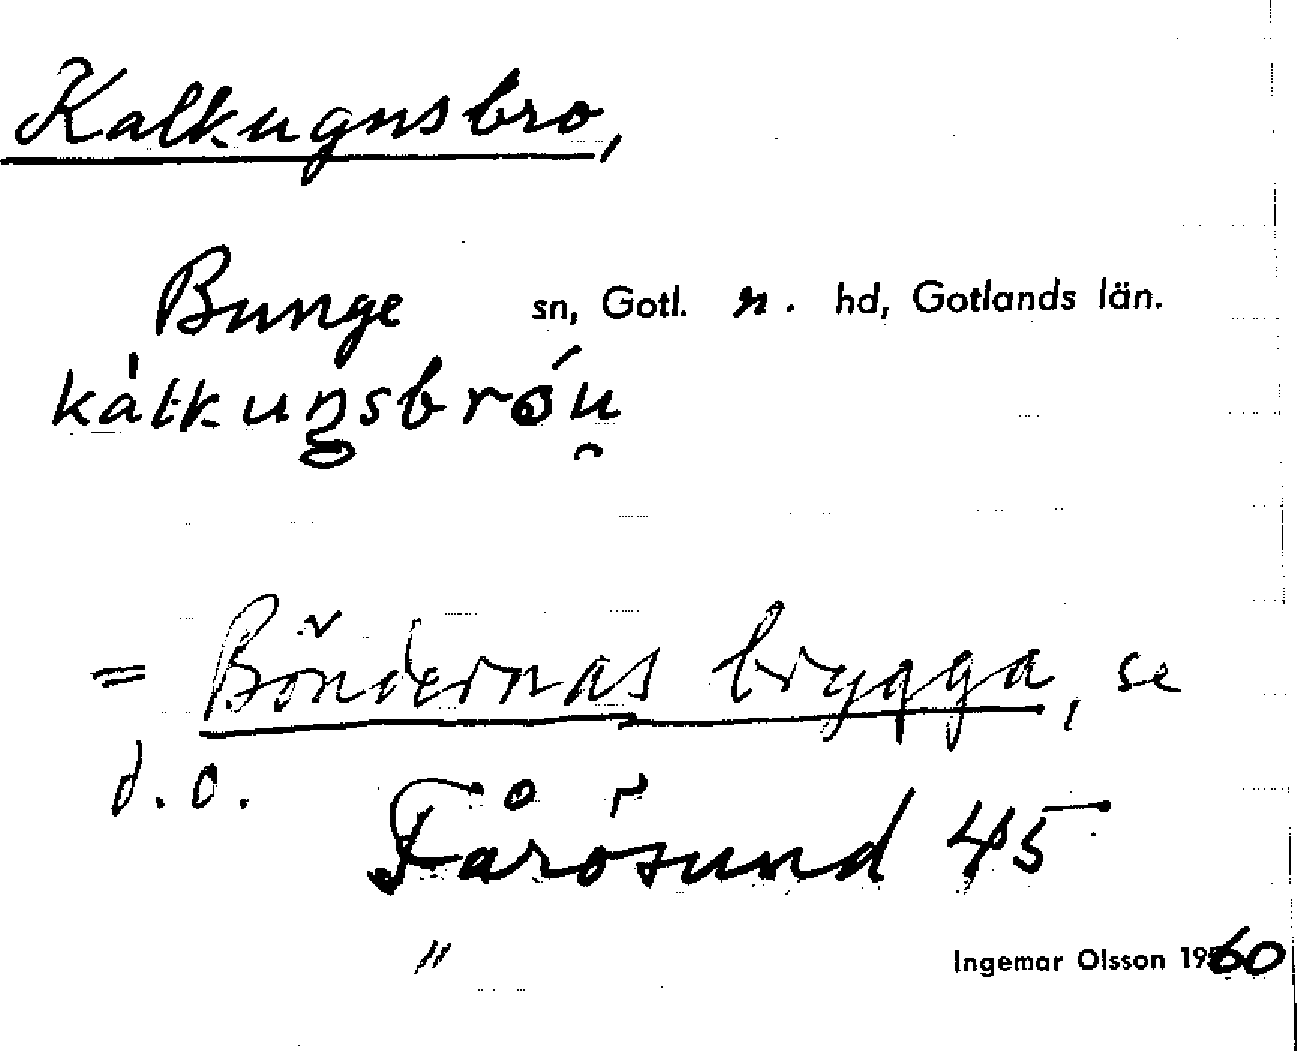 Kalkugnsbro,
Bunge sn, Gotl. n. hd, Gotlands län.
kálkuŋsbróu̯
= Böndernas brygga, se
d.o.
Fårösund 45
"
Ingemar Olsson 1960